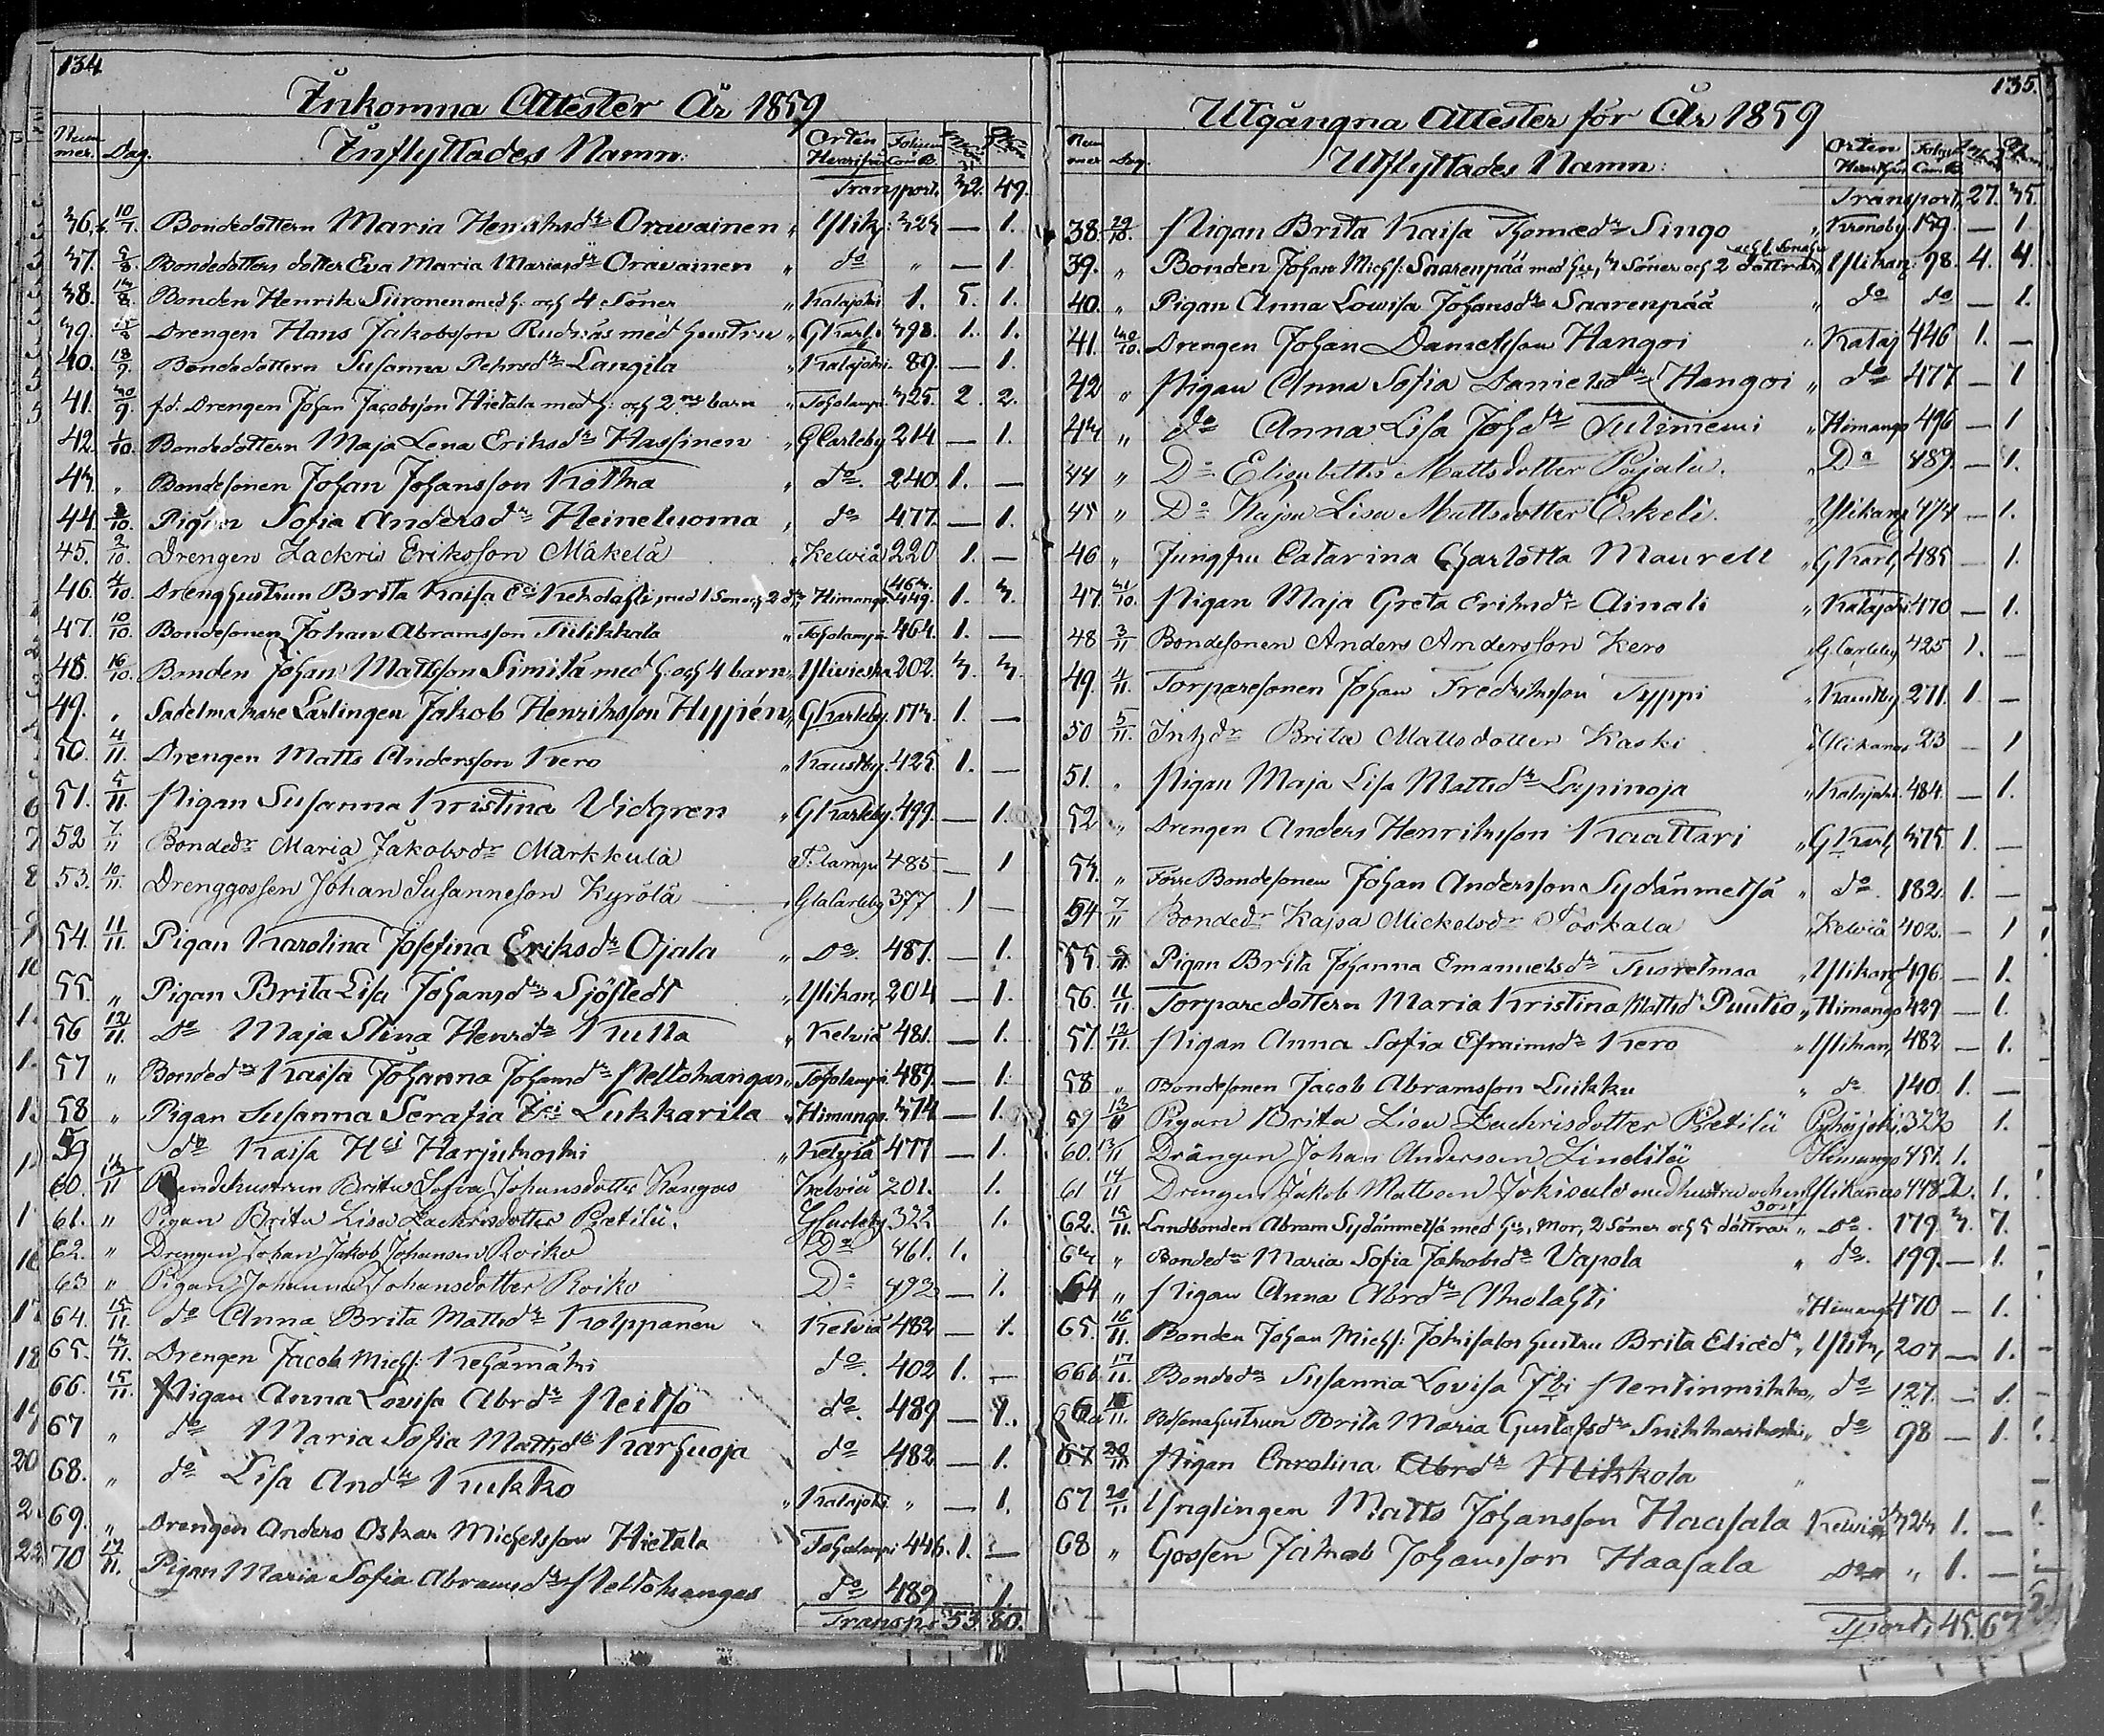 134
Inkomna Attester År 1859
Nummer. Dag. Inflyttades Namn: Orten Hvarifrån Folium Com.B.
Transport. 32. 49.
36. 10/7. Bondedottern Maria Henriksdr Oravainen „ Ylik: 323 — 1.
37. 5/8. Bondedotters dotter Eva Maria Mariasdr Oravainen „ do „ — 1.
38. 14/8. Bonden Henrik Siironen med h. och 4 Söner „ Kalajoki 1. 5. 1.
39. Drengen Hans Jakobsson Rudnäs med hustru „ GKarl. 398. 1. 1.
40. 18/9. Bondedottern Susanna Pehrsdr Langila „ Kalajoki. 89. — 1.
41. 30/9. f.d. Drengen Johan Jacobsson Hietala med h: och 2ne barn „ Toholampi. 325. 2. 2.
42. 1/10. Bondedottern Maja Lena Eriksdr Hassinen „ GCarleby 214 — 1.
43. „ Bondesonen Johan Johansson Kotka „ do. 240. 1. —
44. 2/10. Pigan Sofia Andersdr Heineluoma „ do 477. — 1.
45. 2/10. Drengen Zackris Eriksson Mäkelä „ Kelviå 220 1. —
46. 4/10. Drenghustrun Brita Kaisa Edr Kekolahti, med 1 Son och 2 dr. „ Himango 463. 449. 1. 3.
47. 10/10. Bondesonen Johan Abramsson Tiilikkala „ Toholampi. 464. 1. —
48. 16/10. Bonden Johan Mattsson Similä med h: och 4 barn „ Ylivieska 202. 3. 3.
49. „ Sadelmakare Lärlingen Jakob Henriksson Hyppén „ GKarleby. 173. 1. —
50. 4/11. Drengen Matts Andersson Kero „ Kaustby. 425. 1. —
51. 5/11. Pigan Susanna Kristina Vidgren „ GKarleby. 499. — 1.
52 7/11 Bondedr Maria Jakobsdr Markkula T:lampi 485. — 1
53. 10/11. Drenggossen Johan Susanneson Kyrölä — „ GlaCarleby 377 1 —
54. 11/11. Pigan Karolina Josefina Eriksdr Ojala „ Do. 487. — 1.
55. „ Pigan Brita Lisa Johansdr Sjöstedt „ Ylikan, 204 — 1.
56 12/11. Do Maja Stina Henrdr Kulla „ Kelviå 481. — 1.
57 „ Bondedr Kaisa Johanna Johansdr Peltokangas „ Toholampi. 489. — 1.
58 „ Pigan Susanna Serafia Lukkarila „ Himango. 374. — 1.
59 do Kaisa Hdr Harjukoski „ Kelviå 477 — 1.
60. 14/11 Bondehustrun Brita Sofia Johansdotter Kangas Kelviå 201. 1.
61. „ Pigan Brita Lisa Zachrisdotter Pretilä. GCarleby 322 1.
62. „ Drengen Johan Jakob Johansson Roiko Do 461. 1.
63 „ Pigan Johanna Johansdotter Roiko Do 492 — 1.
64. 15/11. do Anna Brita Mattsdr Kolppanen Kelviå 482 — 1.
65. 14/11. Drengen Jacob Michs: Kehämäki do. 402 1. —
66. 15/11. Pigan Anna Lovisa Abrdr Peitso do. 489 — 1.
67 „ do Maria Sofia Mattsdr Karhuoja do 482 — 1.
68. „ do Lisa Andr Kukko „ Kalajoki „ — 1.
69. „ Drengen Anders Oskar Michelsson Hietala Toholampi 446. 1. —
70 17/11. Pigan Maria Sofia Abramsdr Peltokangas do 489 1.
Transpt 53. 80.
135.
Utgångna Attester för År 1859
Nummer Dag. Utflyttades Namn: Orten Hvartill Folium Com.B.
Transport, 27. 35.
38. 29/10. Pigan Brita Kaisa Thomædr Singo „ Kronoby 159. — 1.
och 1 Sonahu
39. „ Bonden Johan Michs: Saarenpää med hu, 3 Söner och 2 döttrar, Ylikan, 98. 4. 4.
40. „ Pigan Anna Lowisa Johansdr Saarenpää „ do do — 1.
41. 30/10. Drengen Johan Danielsson Hangoi „ Kalaj 446 1. —
42 „ Pigan Anna Sofia Danielsdr Hangoi „ do 477 — 1
43 „ do Anna Lisa Johdr Tuliniemi „ Himango 496 — 1
44 „ Do Elisabeth Mattsdotter Pajala. „ Do 489. — 1.
45 „ Do Kajsa Lisa Mattsdotter Eskeli. „ Ylikan 474 — 1.
46 „ Jungfru Catarina Charlotta Maurell „ GKarl, 485 — 1.
47. 31/10. Pigan Maja Greta Eriksdr Ainali „ Kalajoki 470 — 1.
48 3/11 Bondesonen Anders Andersson Kero G.Carleby 425 1. —
49. 4/11. Torparesonen Johan Fredriksson Typpi „ Kaustby 271. 1 —
50 5/11. Inhdr Brita Mattsdotter Kaski „ Ylikanus 23 — 1
51. „ Pigan Maja Lisa Mattsdr Lapinoja „ Kalajoki. 484. — 1.
52 „ Drengen Anders Henriksson Kaattari „ GKarl, 375 1. —
53. „ Förre Bondesonen Johan Andersson Sydänmetsä „ do. 182. 1. —
54 7/11 Bondedr Kajsa Mickelsdr Poskala „ Kelviå 402. — 1
55. Pigan Brita Johanna Emanuelsdr Tuoretmaa „ Ylikan 496. — 1.
56. 11/11. Torparedottern Maria Kristina Mattsdr Puutio „ Himango 429. — 1.
57. 12/11. Pigan Anna Sofia Efraimsdr Kero „ Ylikan, 482 — 1.
58 „ Bondesonen Jacob Abramsson Luikku „ do 140. 1. —
59 13/11 Pigan Brita Lisa Zachrisdotter Pretilä Pyhäjoki, 322 1.
60. 13/11 Drängen Johan Andersson Linditä Himango 451. 1.
61 14/11 Drengen Jakob Mattson Jokisalo med hustru och en son Ylikannus 448 2. 1.
62. 15/11. Landbonden Abram Sydänmetsä med hu, Mor, 2 Söner och 5 döttrar „ Do. 179. 3. 7.
63 „ Bondedr Maria Sofia Jakobsdr Vapola „ do. 199. — 1.
64 „ Pigan Anna Abrdr Aholahti „ Himang 470 — 1.
65. 16/11. Bonden Johan Michs: Jokisalos hustru Brita Eliædr „ Ylik, 207 — 1.
66b. 17/11. Bondedr Susanna Lovisa Pentinmikko „ do 127. — 1.
66a /11. Bdsonahustrun Brita Maria Gustafsdr Snikkarikoski „ do 98 — 1.
67 20/11 Pigan Carolina Abrdr Mikkola „
67 20/11 Ynglingen Matts Johansson Haasala Kelviå 324 1. —
68 „ Gossen Jakob Johansson Haasala Do „ 1. —
Tport, 45. 67